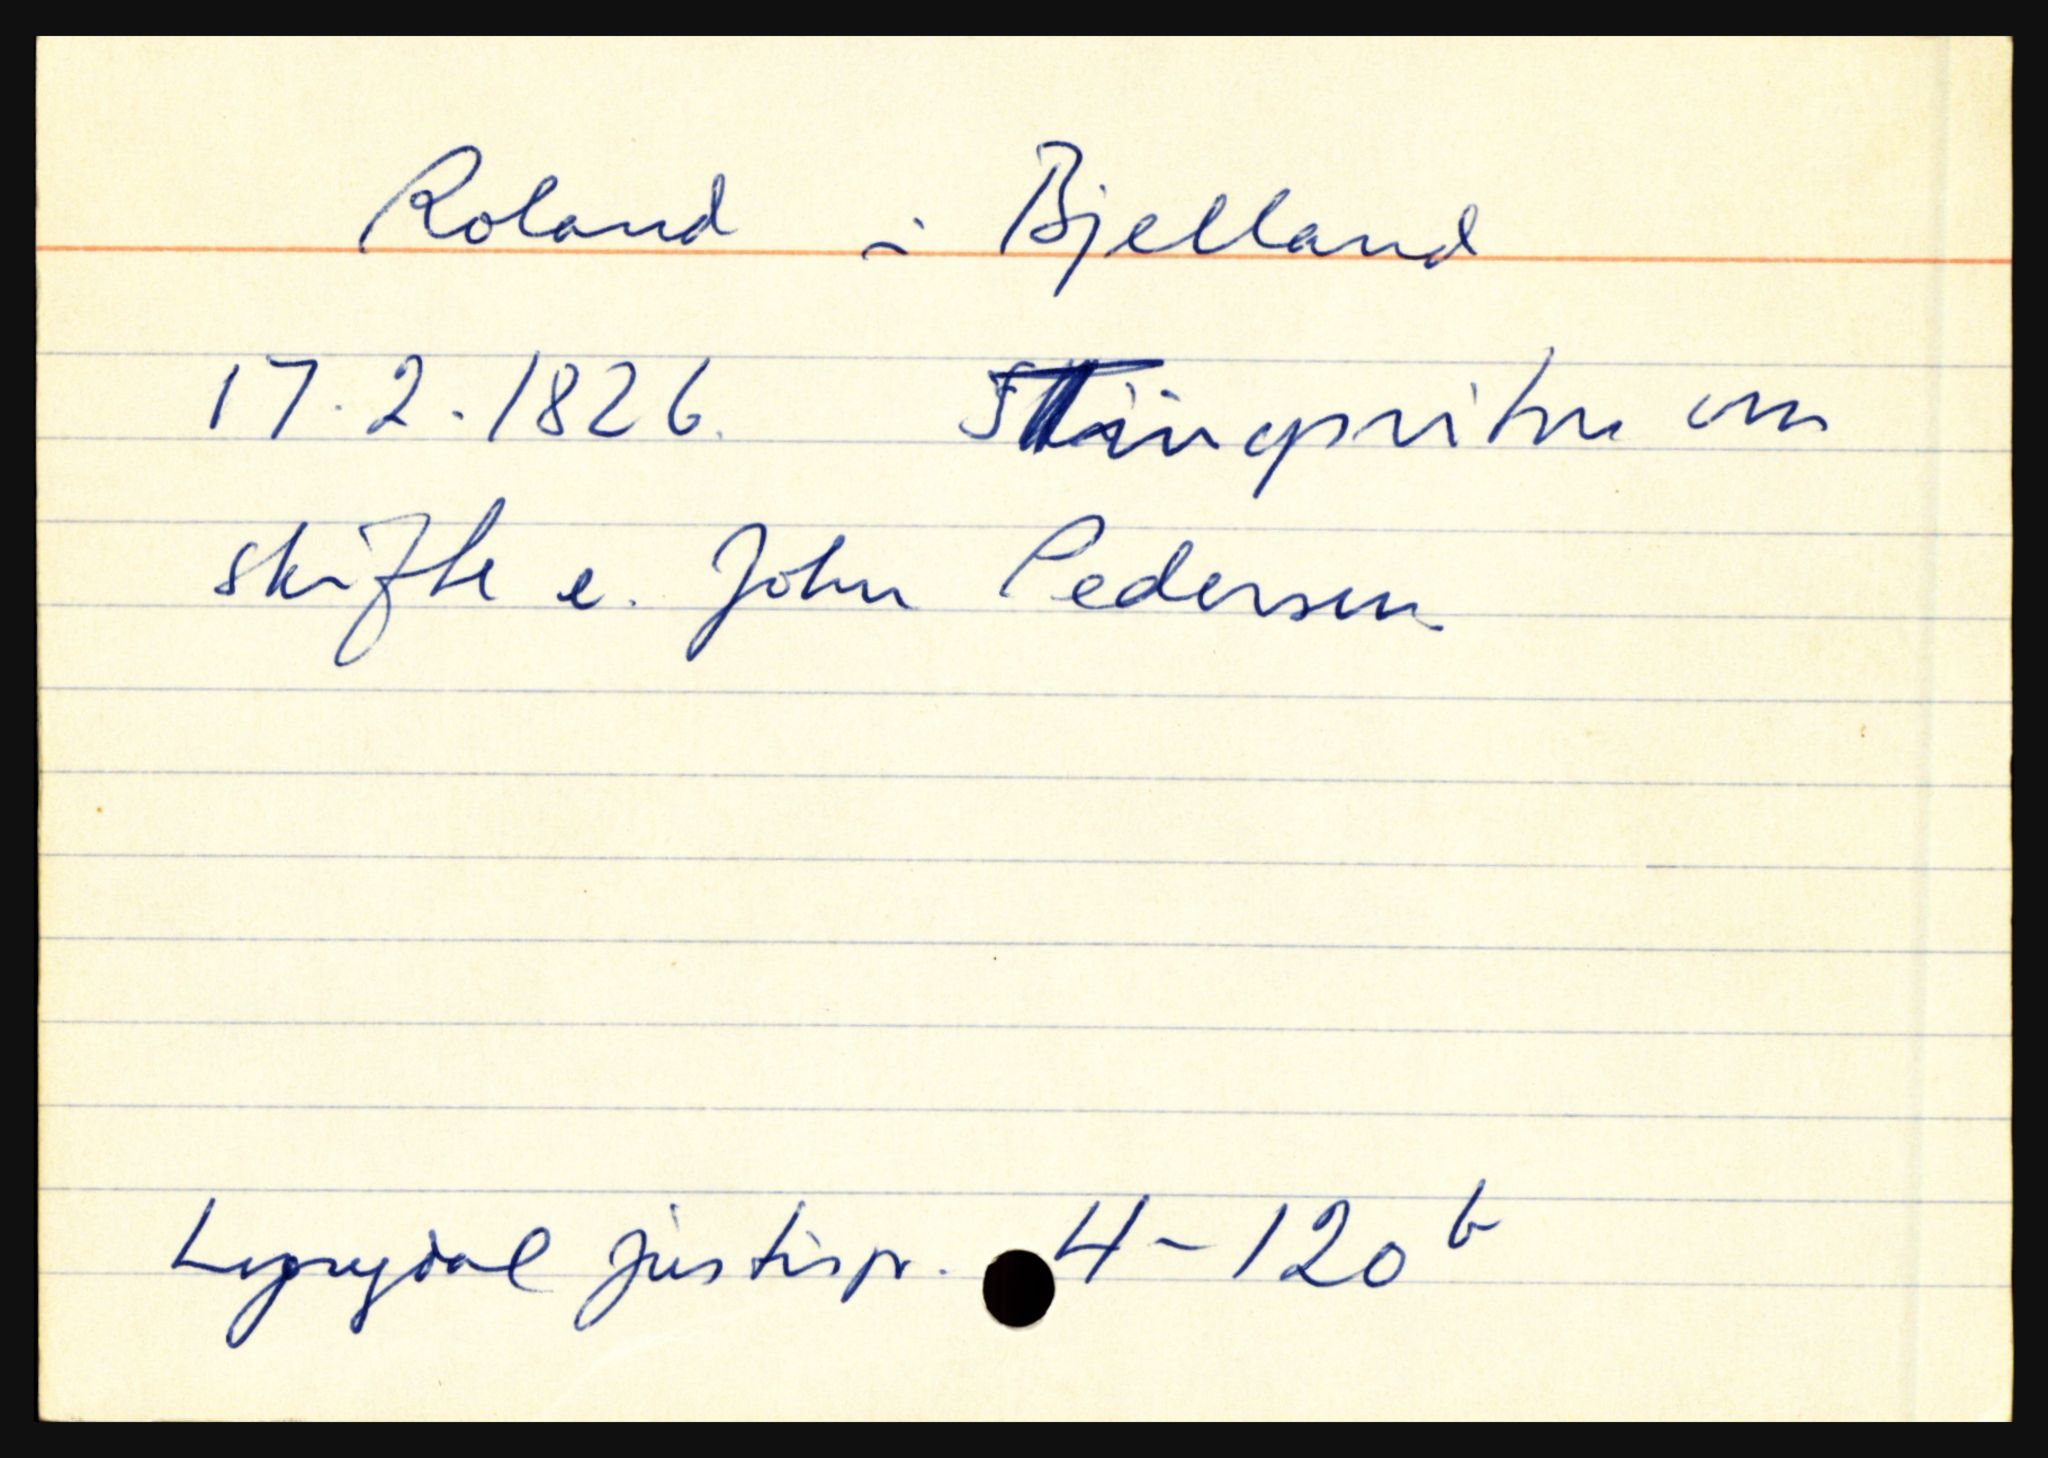 Roland i Bjelland
17.2.1826. Tingsvitne om
skifte e. John Pedersen
Lyngdal justispr. 4-120b